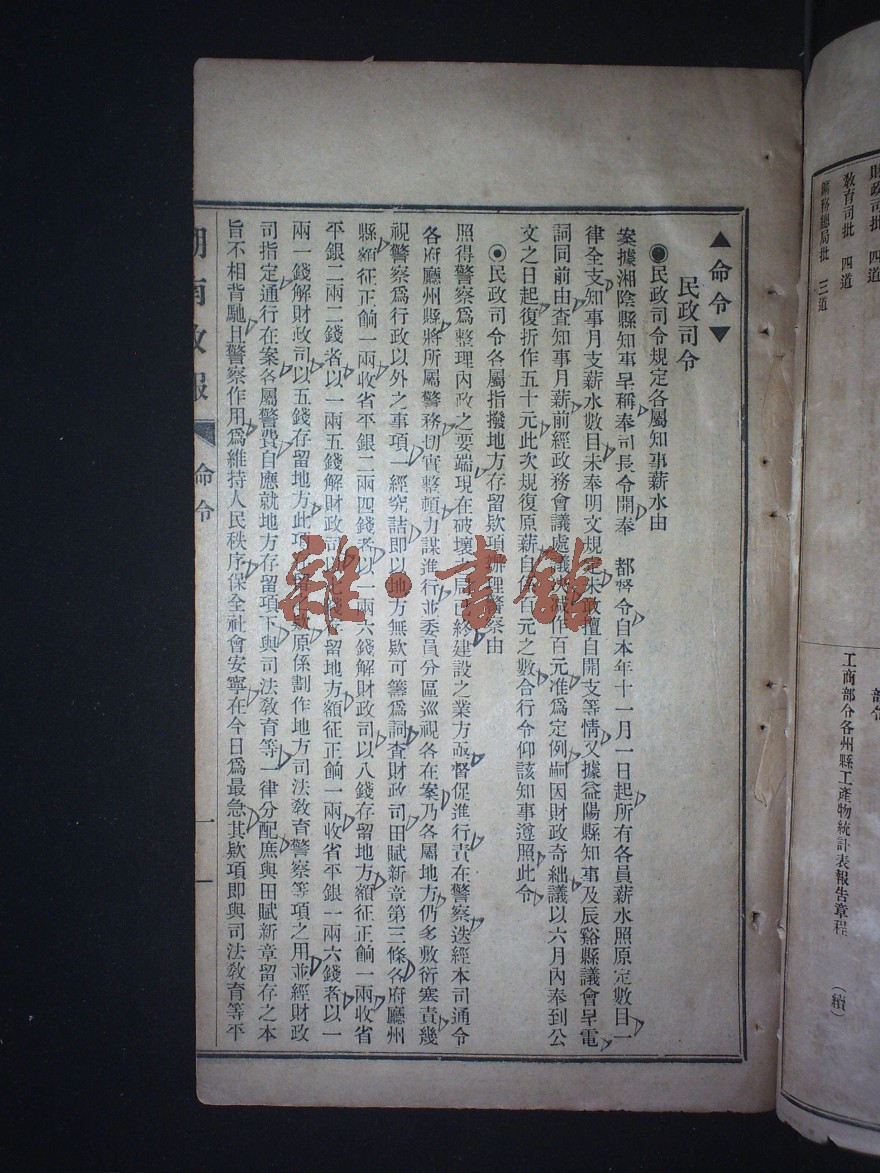 財政司批 四道
教育司批 四道
鑛務總局批 三道
部令
工商部令各州縣工產物統計表報告章程 (續)
▲命令▼
民政司令
◉民政司令規定各屬知事薪水由
案據湘陰縣知事呈稱奉司長令開奉 都督令自本年十一月一日起所有各員薪水照原定數目一
律全支知事月支薪水數目未奉明文規定未敢擅自開支等情又據益陽縣知事及辰谿縣議會呈電
詞同前由查知事月薪前經政務會議處議決減作百元准為定例嗣因財政奇絀議以六月內奉到公
文之日起復折作五十元此次規復原薪自係百元之數合行令仰該知事遵照此令
◉民政司令各屬指撥地方存留欵項辦理警察由
照得警察為整理內政之要端現在破壞之局已終建設之業方亟督促進行責在警察迭經本司通令
各府廳州縣將所屬警務切實整頓力謀進行並委員分區巡視各在案乃各屬地方仍多敷衍塞責幾
視警察為行政以外之事項一經究詰即以地方無欵可籌為詞查財政司田賦新章第三條各府廳州
縣額征正餉一兩收省平銀二兩四錢者以一兩六錢解財政司以八錢存留地方額征正餉一兩收省
平銀二兩二錢者以一兩五錢解財政司以七錢存留地方額征正餉一兩收省平銀一兩六錢者以一
兩一錢解財政司以五錢存留地方此項存留之欵原係劃作地方司法教育警察等項之用並經財政
司指定通行在案各屬警費自應就地方存留項下與司法教育等一律分配庶與田賦新章留存之本
旨不相背馳且警察作用為維持人民秩序保全社會安寧在今日為最急其欵項即與司法教育等平
湖南政報
命令
一
一
雜·書館